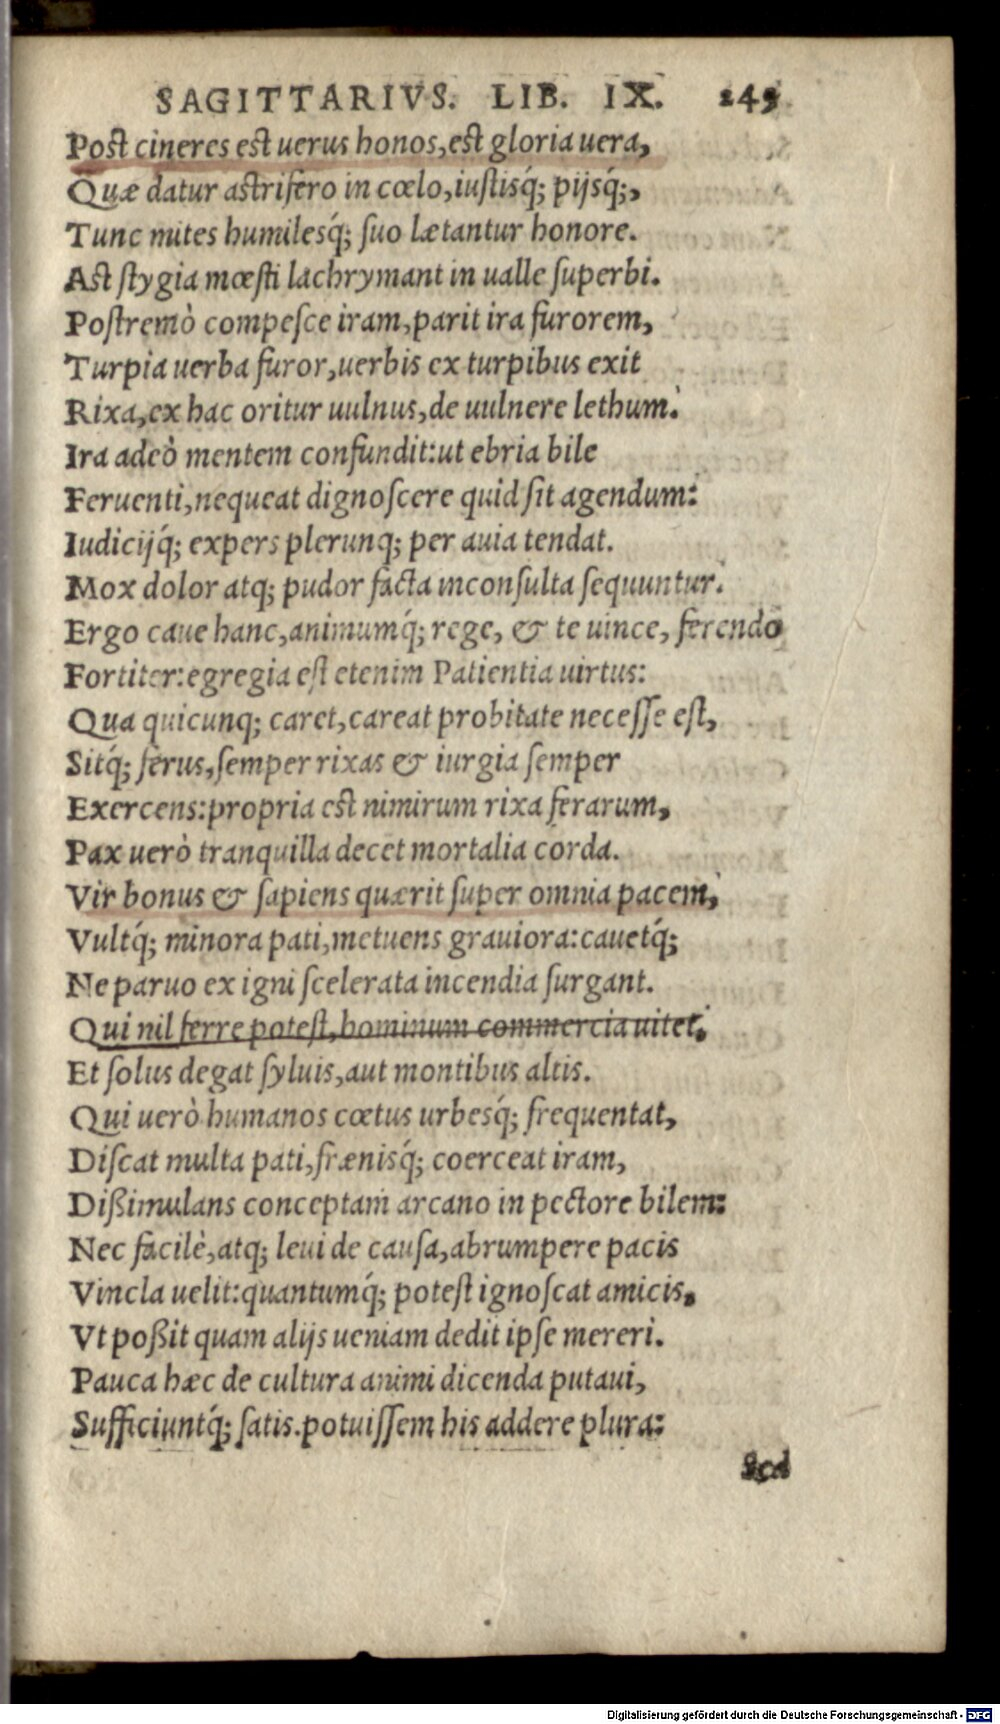 SAGITTARIVS. LIB. IX. 245
Post cineres est uerus honos, est gloria uera,
Quæ datur astrifero in cœlo, iustisq́; pijsq́;,
Tunc mites humilesq́; suo lætantur honore.
Ast stygia mœsti lachrymant in ualle superbi.
Postremò compesce iram, parit ira furorem,
Turpia uerba furor, uerbis ex turpibus exit
Rixa, ex hac oritur uulnus, de uulnere lethum.
Ira adeò mentem confundit: ut ebria bile
Feruenti, nequeat dignoscere quid sit agendum:
Iudicijq́; expers plerunq; per auia tendat.
Mox dolor atq; pudor facta inconsulta sequuntur.
Ergo caue hanc, animumq́; rege, & te uince, ferendo
Fortiter: egregia est etenim Patientia uirtus:
Qua quicunq; caret, careat probitate necesse est,
Sitq́; ferus, semper rixas & iurgia semper
Exercens: propria est nimirum rixa ferarum,
Pax uerò tranquilla decet mortalia corda.
Vir bonus & sapiens quærit super omnia pacem,
Vultq́; minora pati, metuens grauiora: cauetq́;
Ne paruo ex igni scelerata incendia surgant.
Qui nil ferre potest, hominum commercia uitet,
Et solus degat syluis, aut montibus altis.
Qui uerò humanos cœtus urbesq́; frequentat,
Discat multa pati, frænisq́; coerceat iram,
Dißimulans conceptam arcano in pectore bilem:
Nec facilè, atq; leui de causa, abrumpere pacis
Vincla uelit: quantumq́; potest ignoscat amicis,
Vt poßit quam alijs ueniam dedit ipse mereri.
Pauca hæc de cultura animi dicenda putaui,
Sufficiuntq́; satis. potuissem his addere plura:
Sed
Digitalisierung gefördert durch die Deutsche Forschungsgemeinschaft - DFG